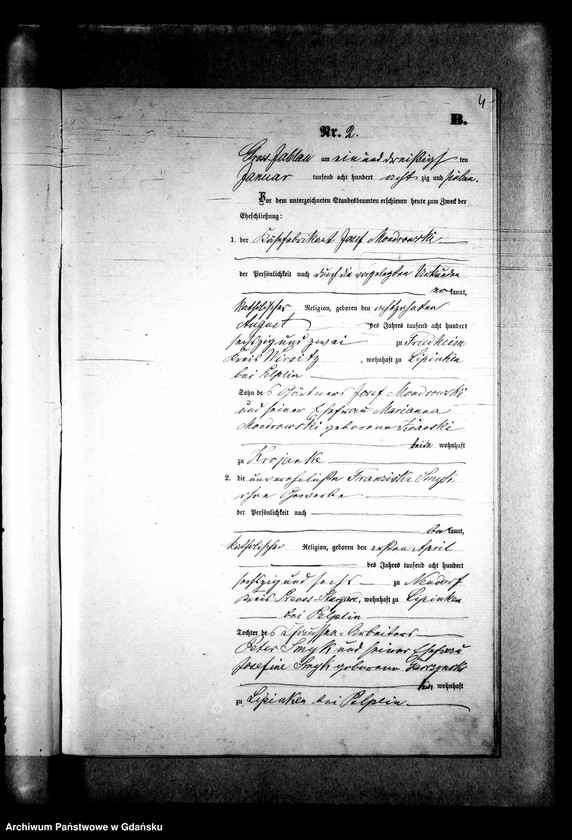 4
B.
Nr. 2.
Gross Jablau am ein und dreißigsten
Januar tausend acht hundert achtzig und sieben.
Vor dem unterzeichneten Standesbeamten erschienen heute zum Zweck der
Eheschließung:
1. der Käsefabrikant Josef Mondrowski
der Persönlichkeit nach durch die vorgelegten Urkunden
anerkannt,
katholischer Religion, geboren den achtzehnten
August des Jahres tausend acht hundert
sechszig und zwei zu Friedheim
Kreis Wirsitz, wohnhaft zu Lipinken
bei Pelplin
Sohn des Gärtners Josef Mondrowski
und seiner Ehefrau Marianna
Mondrowski geborene
beide wohnhaft
zu Krojanke
2. die unverehelichte Franziska Smyk
ohne Gewerbe
der Persönlichkeit nach
bekannt,
katholischer Religion, geboren den ersten April
des Jahres tausend acht hundert
sechszig und sechs zu Neudorf
Kreis Preuss. Stargard, wohnhaft zu Lipinken
bei Pelplin
Tochter des Chaussee-Arbeiters
Peter Smyk und seiner Ehefrau
Josefine Smyk geborene
beide wohnhaft
zu Lipinken bei Pelplin.
Archiwum Państwowe w Gdańsku